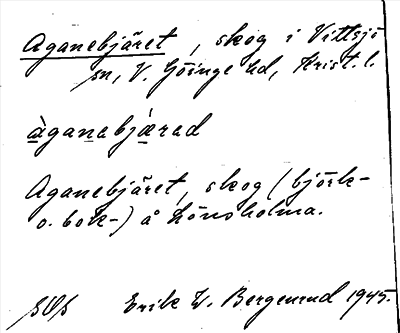 Aganebjäret, skog i Vittsjö
sn, V. Göinge hd, Krist. l.
àganebjæred
Aganebjäret, skog (björk-
o. bok-) å Lönsholma.
SOS Erik W. Bergenrud 1945.